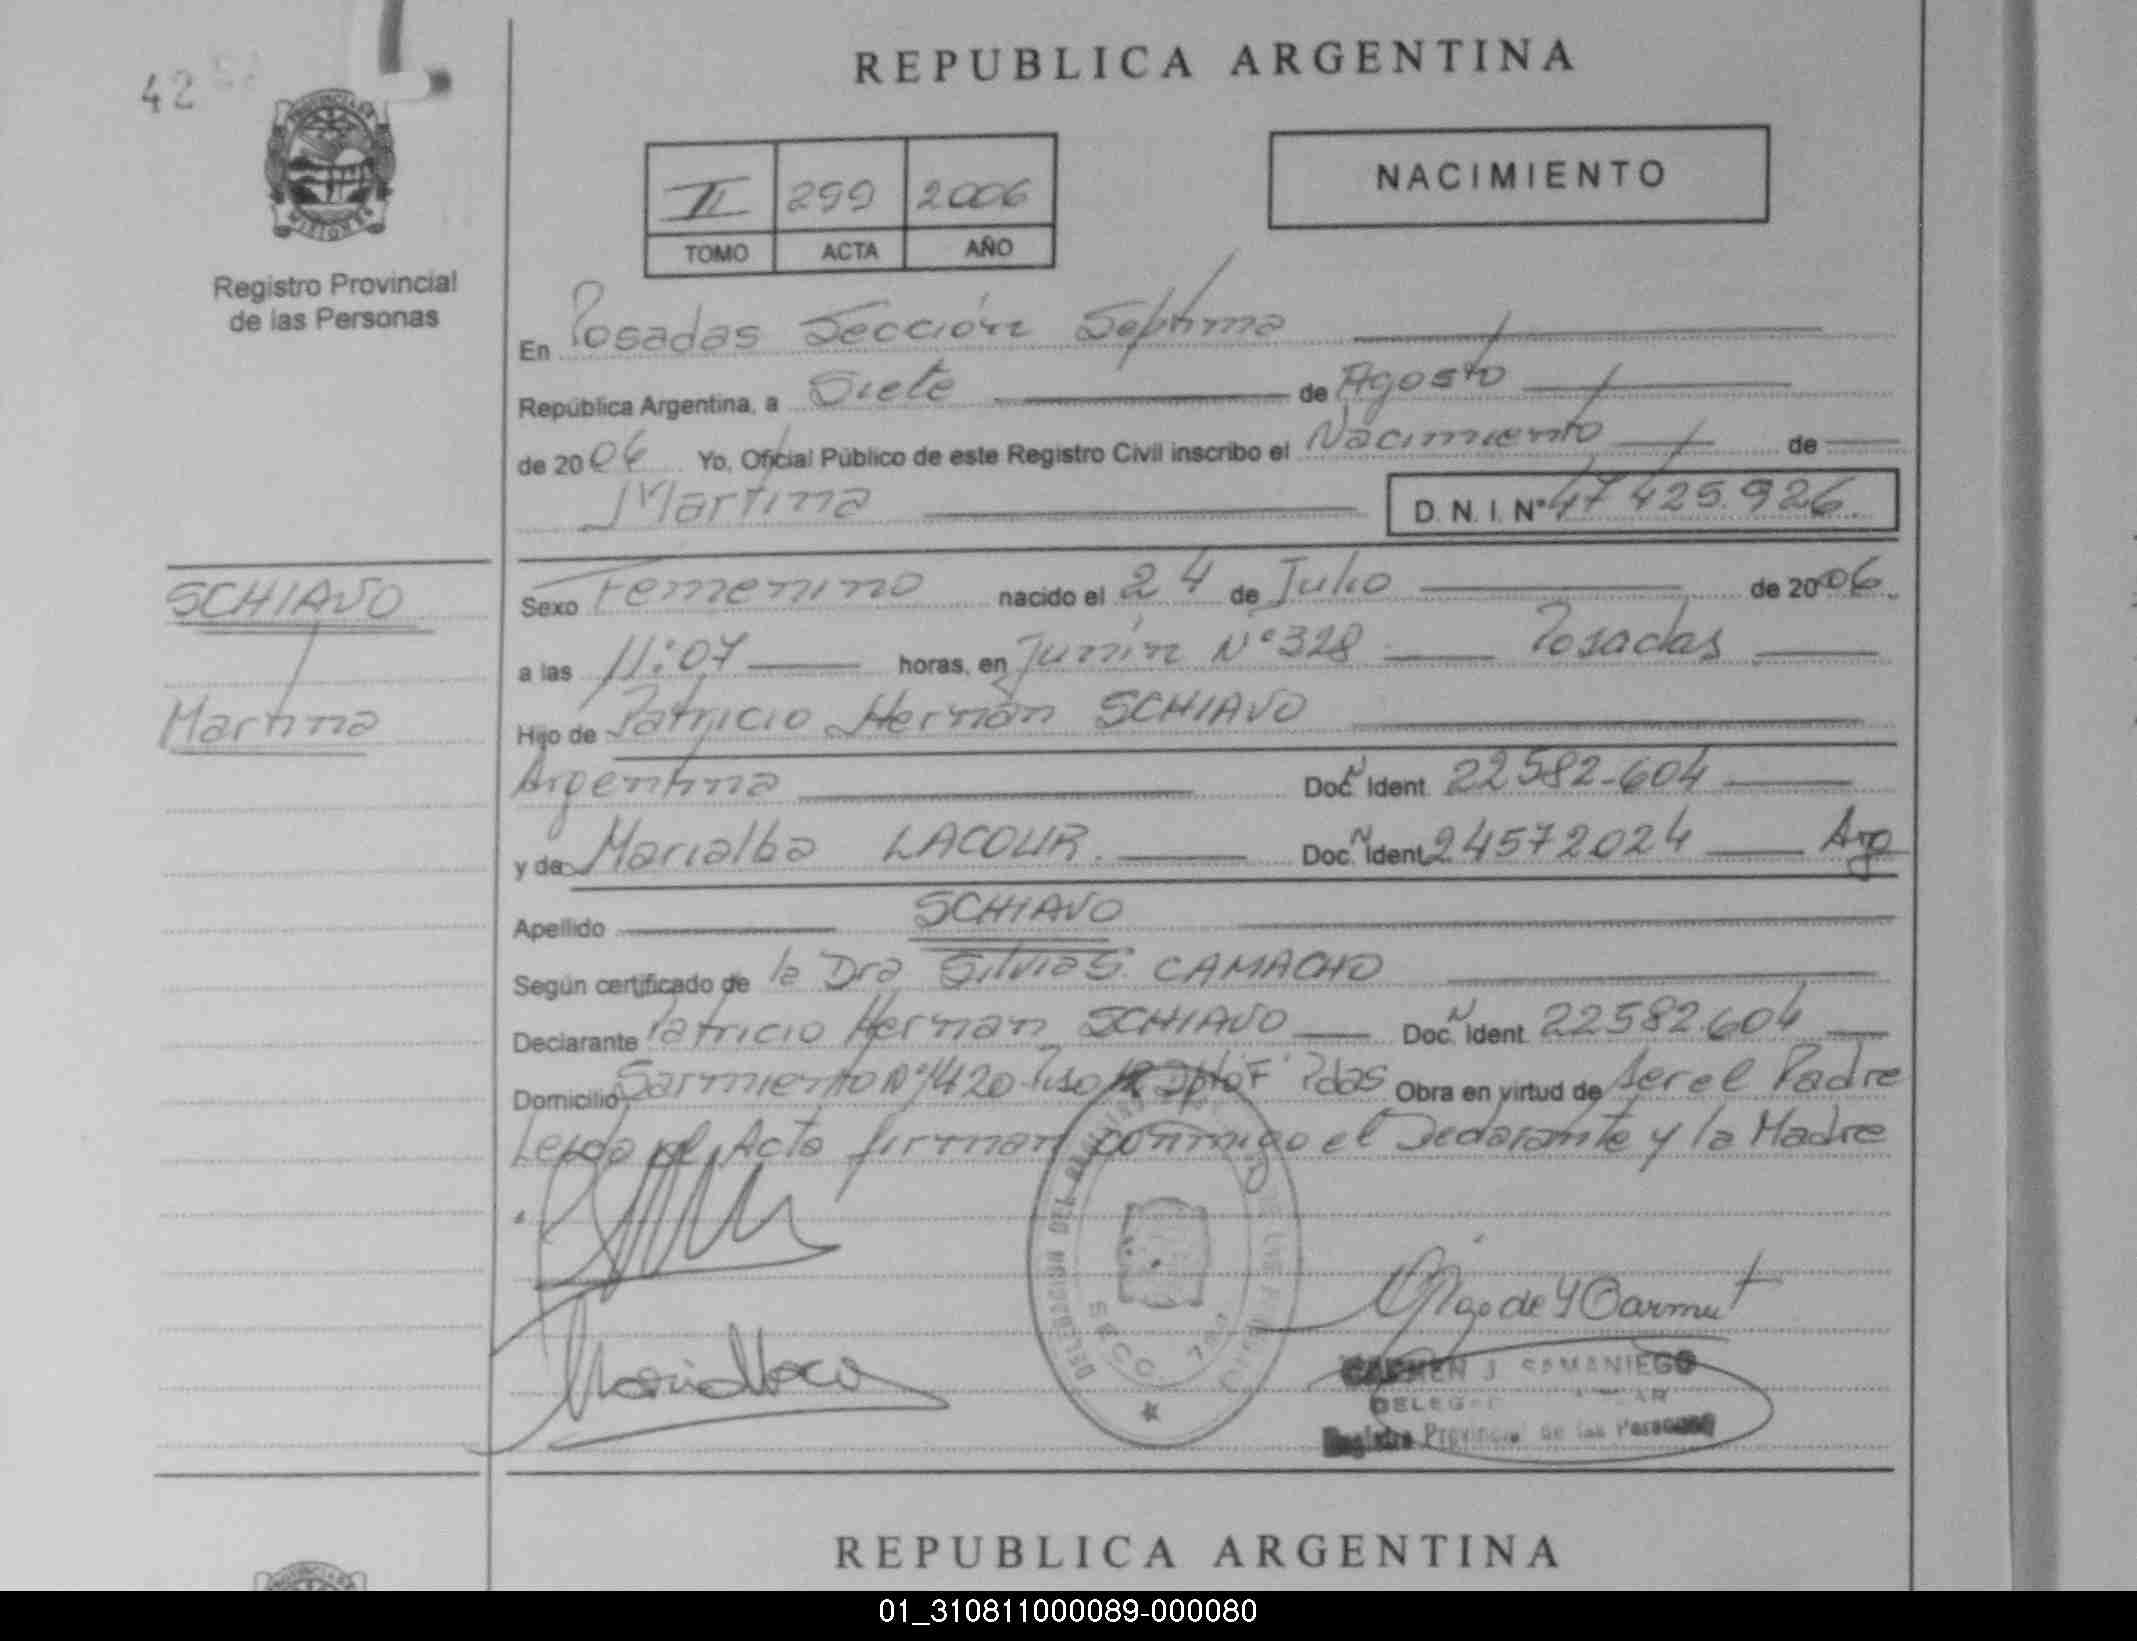 42
REPUBLICA ARGENTINA
PROVINCIA DE
MISIONES
Registro Provincial
de las Personas
II 299 2006
TOMO ACTA AÑO
NACIMIENTO
En Posadas Sección Séptima
República Argentina, a Siete de Agosto
de 2006 Yo, Oficial Público de este Registro Civil inscribo el Nacimiento de
Martina D. N. I. Nº 47425.926
SCHIAVO
Martina
Sexo Femenino nacido el 24 de Julio de 2006
a las 11:07 horas, en Junín Nº 328 Posadas
Hijo de Patricio Hernán SCHIAVO
Argentina Doc. N Ident. 22582.604
y de Marialba LACOUR. Doc. N Ident. 24572024 Arg
Apellido SCHIAVO
Según certificado de la Dra Silvia S. CAMACHO
Declarante Patricio Hernan SCHIAVO Doc. N Ident. 22582.604
Domicilio Sarmiento Nº 1420 Piso Dpto F Pdas Obra en virtud de ser el Padre
Leída el Acta firman conmigo el Declarante y la Madre
SECC. 7
CARMEN J. SAMANIEGO
Registro Provincial de las Personas
REPUBLICA ARGENTINA
01_310811000089-000080